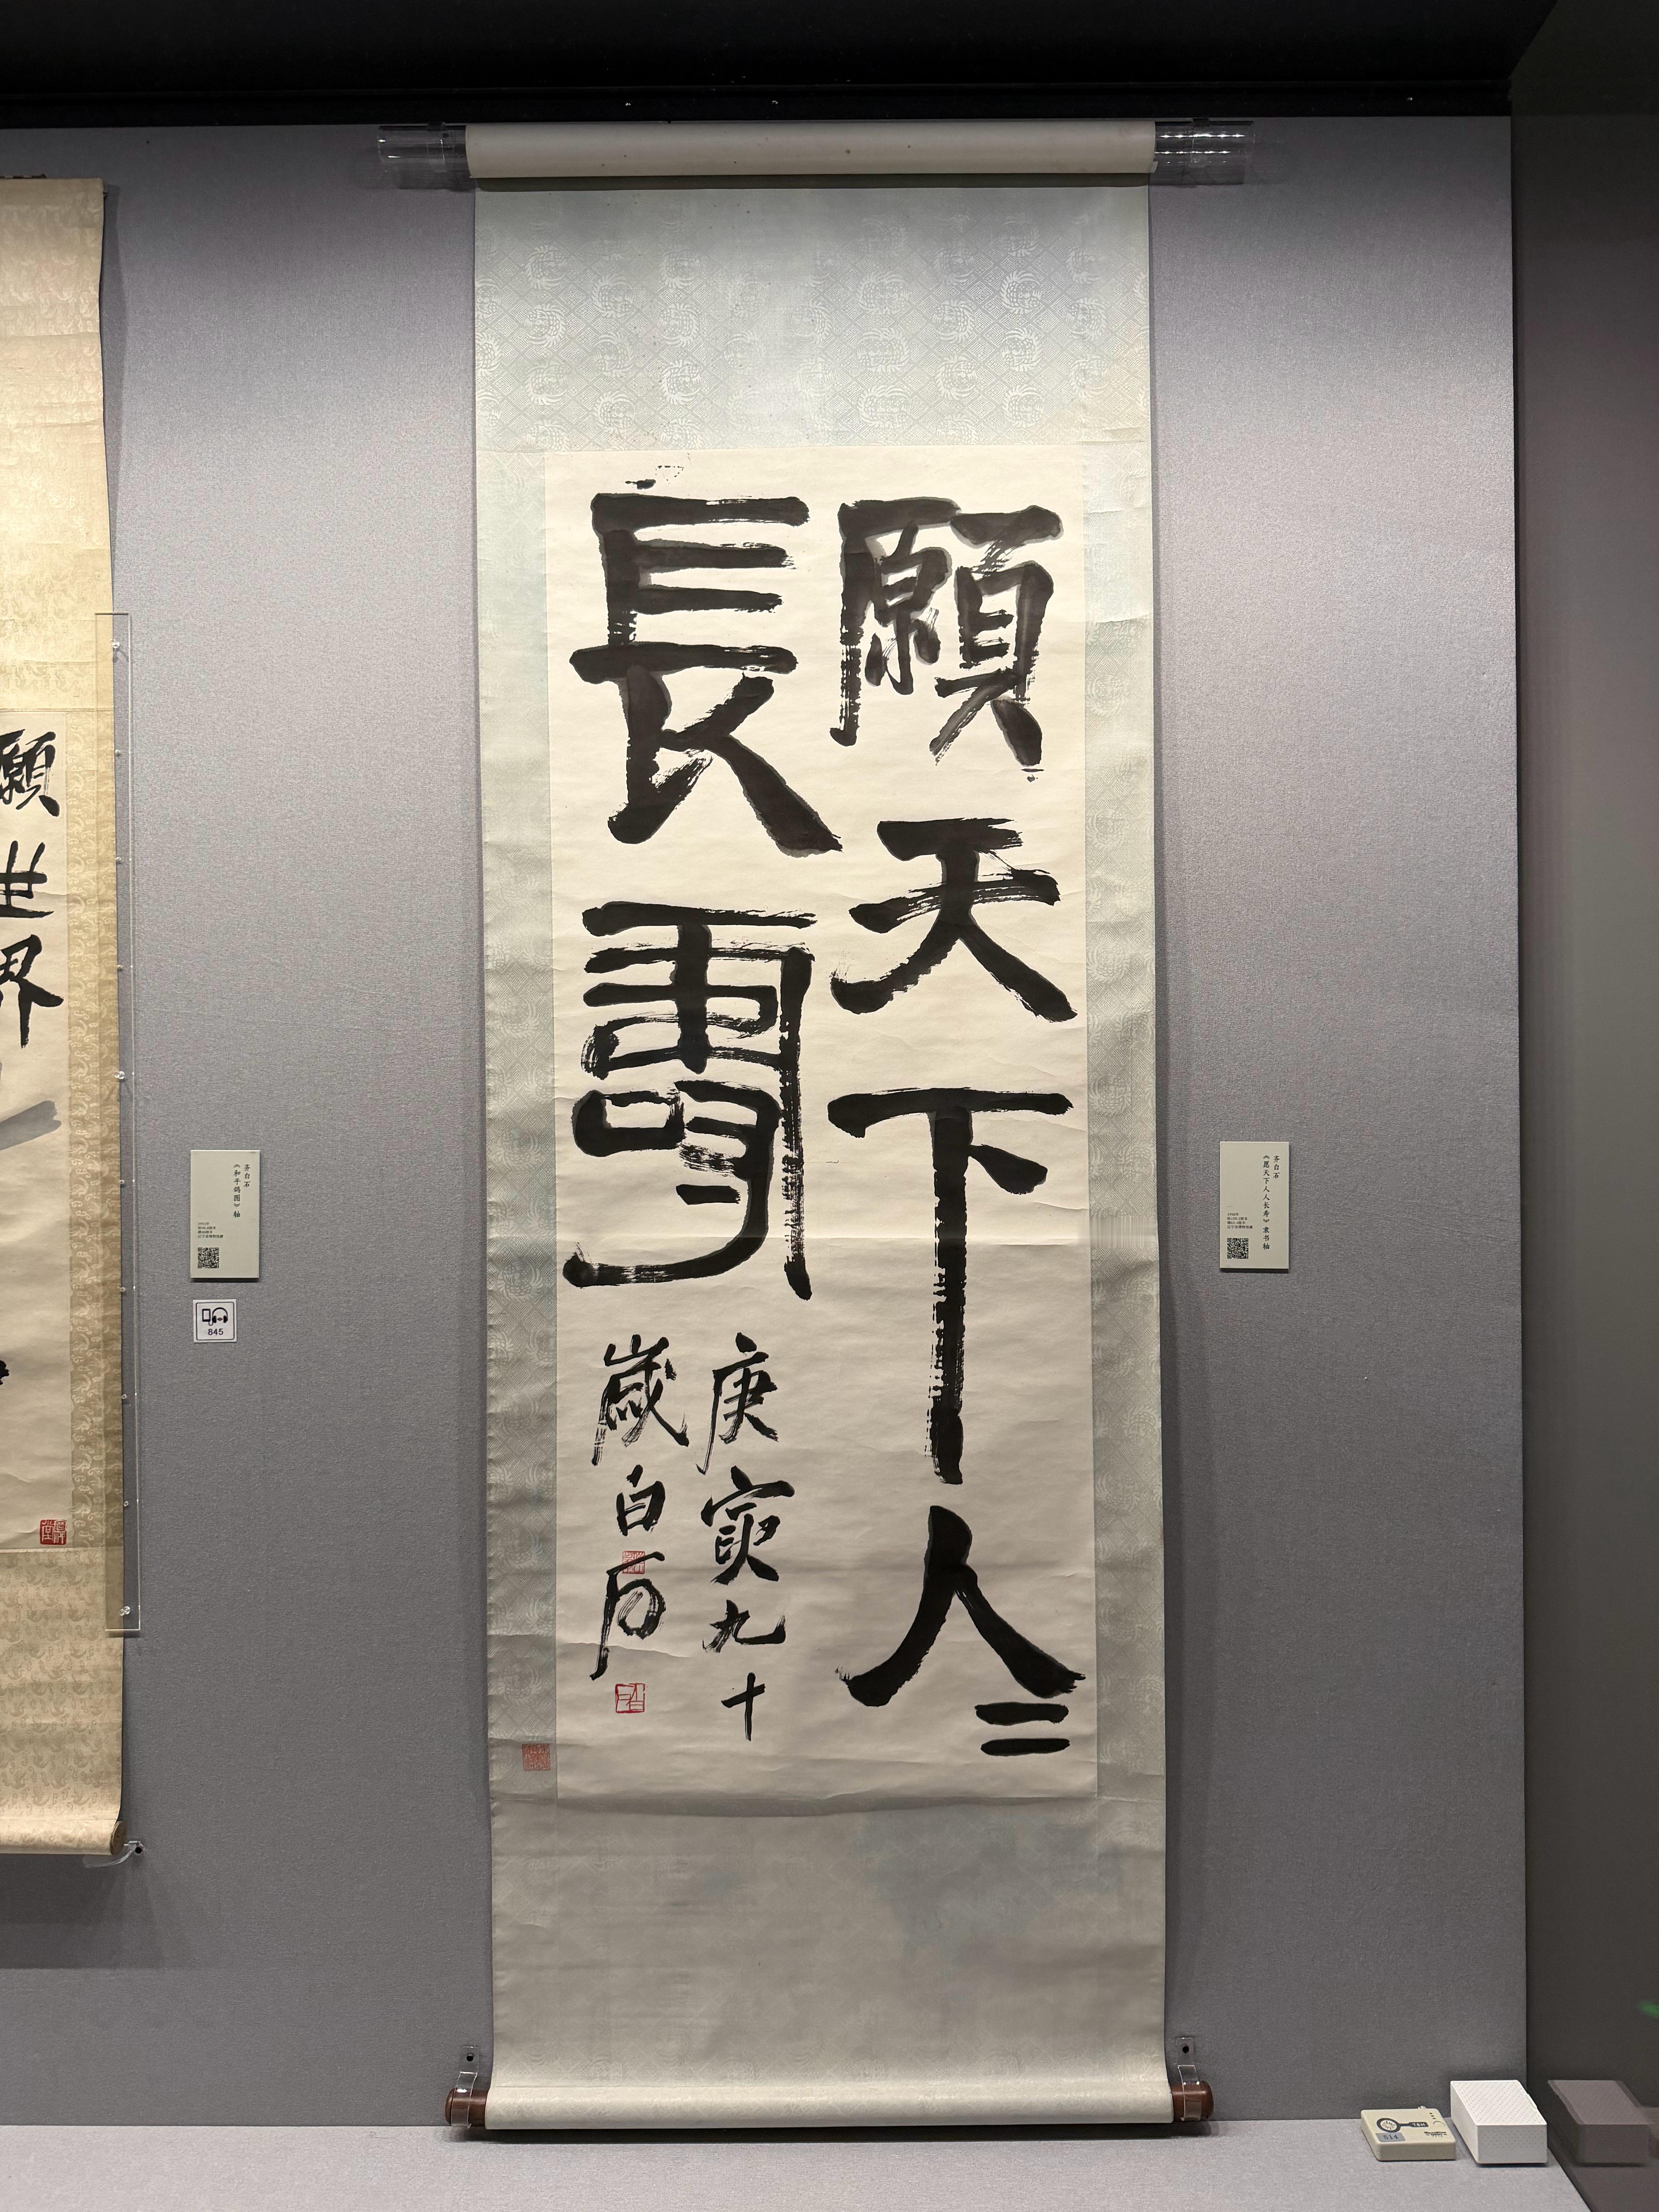 願天下人二
長壽
庚寅九十
歲白石
願世界
齐白石
《和平鸽图》轴
845
齐白石
《愿天下人人长寿》隶书轴
514